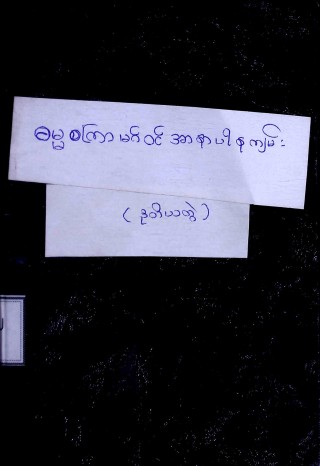 ဓမ္မစကြာမဂ်ဝင်အာနာပါနကျမ်း
(ဒုတိယတွဲ)